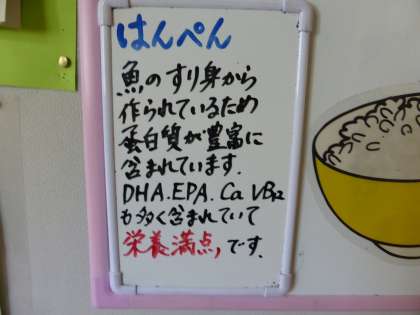 はんぺん
魚のすり身から
作られているため
蛋白質が豊富に
含まれています.
DHA.EPA.Ca VB12
も多く含まれていて
栄養満点,です.